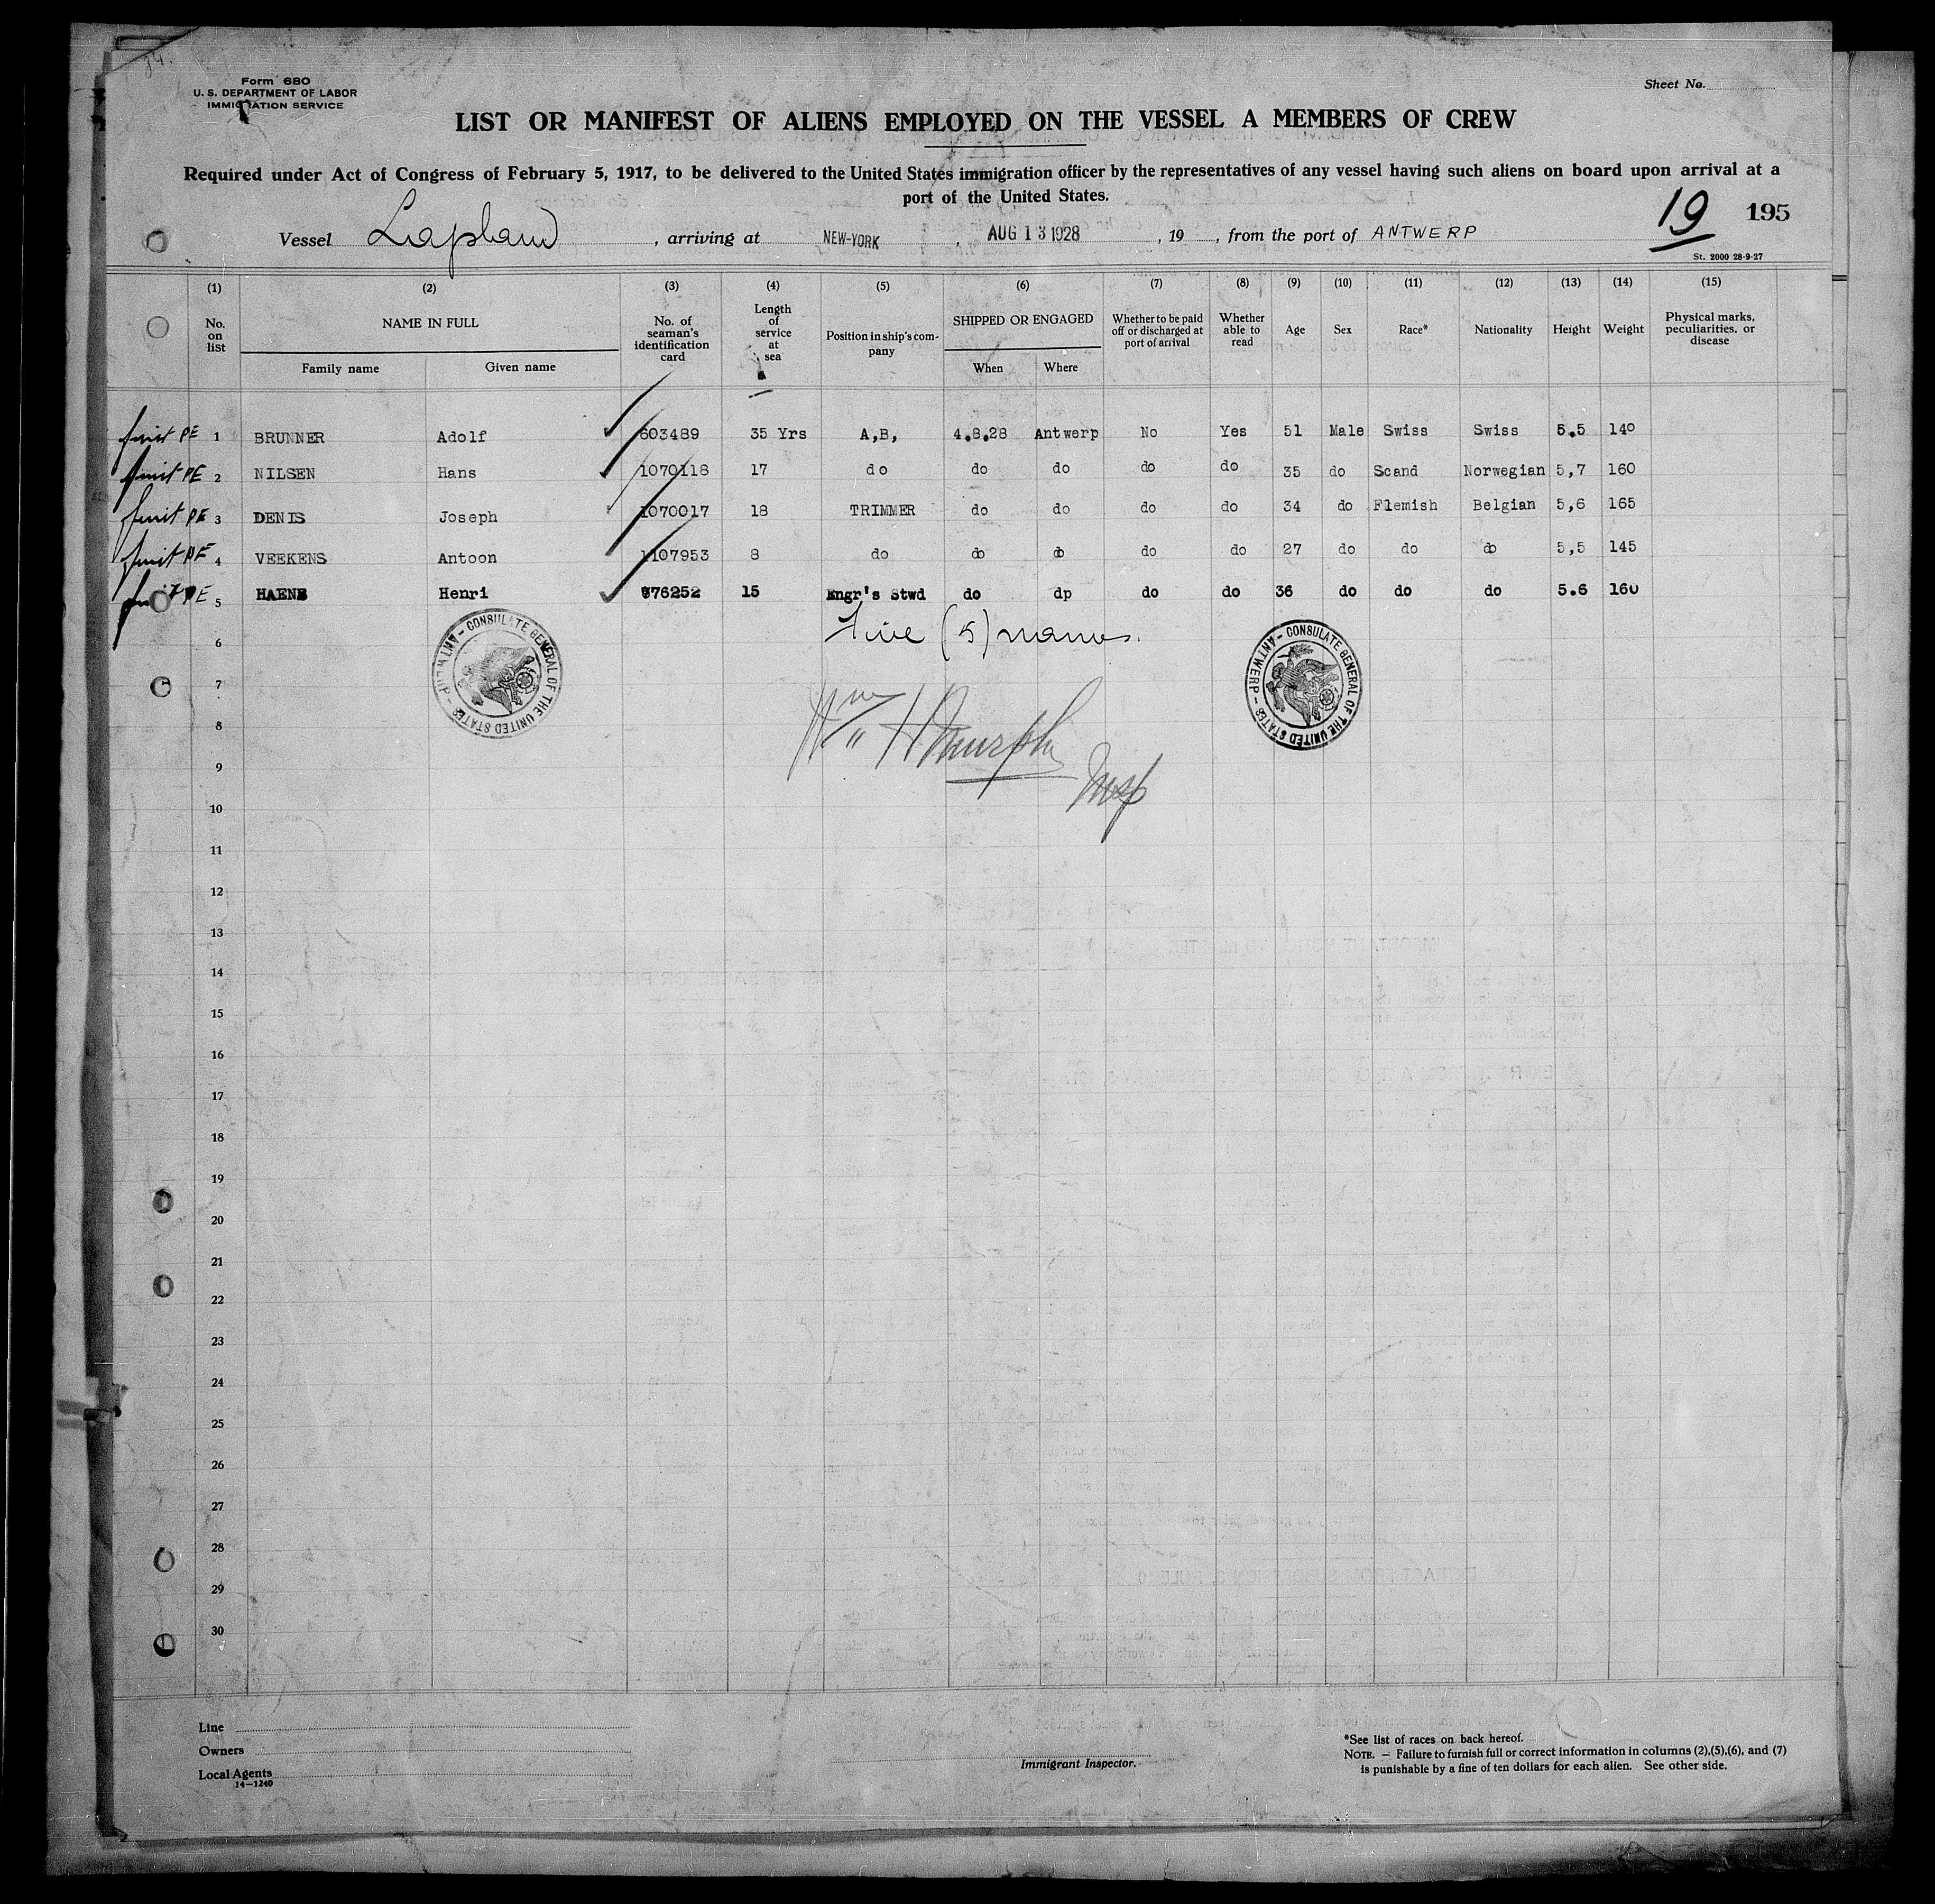 Form 680
U. S. DEPARTMENT OF LABOR
IMMIGRATION SERVICE
Sheet No.
LIST OR MANIFEST OF ALIENS EMPLOYED ON THE VESSEL A MEMBERS OF CREW
Required under Act of Congress of February 5, 1917, to be delivered to the United States immigration officer by the representatives of any vessel having such aliens on board upon arrival at a
port of the United States.
19 195
Vessel Lapland, arriving at NEW-YORK, AUG 13 1928, 19, from the port of ANTWERP
St. 2000 28-9-27
(1) (2) (3) (4) (5) (6) (7) (8) (9) (10) (11) (12) (13) (14) (15)
No. on list NAME IN FULL Family name Given name No. of seaman's identification card Length of service at sea Position in ship's company SHIPPED OR ENGAGED When Where Whether to be paid off or discharged at port of arrival Whether able to read Age Sex Race* Nationality Height Weight Physical marks, peculiarities, or disease
PE 1 BRUNNER Adolf 603489 35 Yrs A,B, 4.8.28 Antwerp No Yes 51 Male Swiss Swiss 5.5 140
PE 2 NILSEN Hans 1070118 17 do do do do do 35 do Scand Norwegian 5,7 160
PE 3 DENIS Joseph 1070017 18 TRIMMER do do do do 34 do Flemish Belgian 5,6 165
PE 4 VEEKENS Antoon 1107953 8 do do do do do 27 do do do 5,5 145
PE 5 Henri 15 Engr's Stwd do dp do do 36 do do do 5.6 160
6 Five (5) names.
CONSULATE GENERAL OF THE UNITED STATES - ANTWERP -
CONSULATE GENERAL OF THE UNITED STATES - ANTWERP -
7
8 Wm H Murphy
9 Insp
10
11
12
13
14
15
16
17
18
19
20
21
22
23
24
25
26
27
28
29
30
Line
Owners
Local Agents
14-1240
Immigrant Inspector.
*See list of races on back hereof.
NOTE. — Failure to furnish full or correct information in columns (2),(5),(6), and (7)
is punishable by a fine of ten dollars for each alien. See other side.